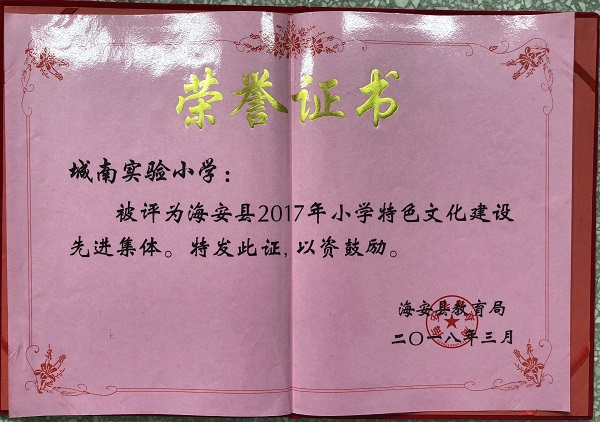 荣誉证书
城南实验小学：
被评为海安县2017年小学特色文化建设
先进集体。特发此证，以资鼓励。
海安县教育局
二〇一八年三月